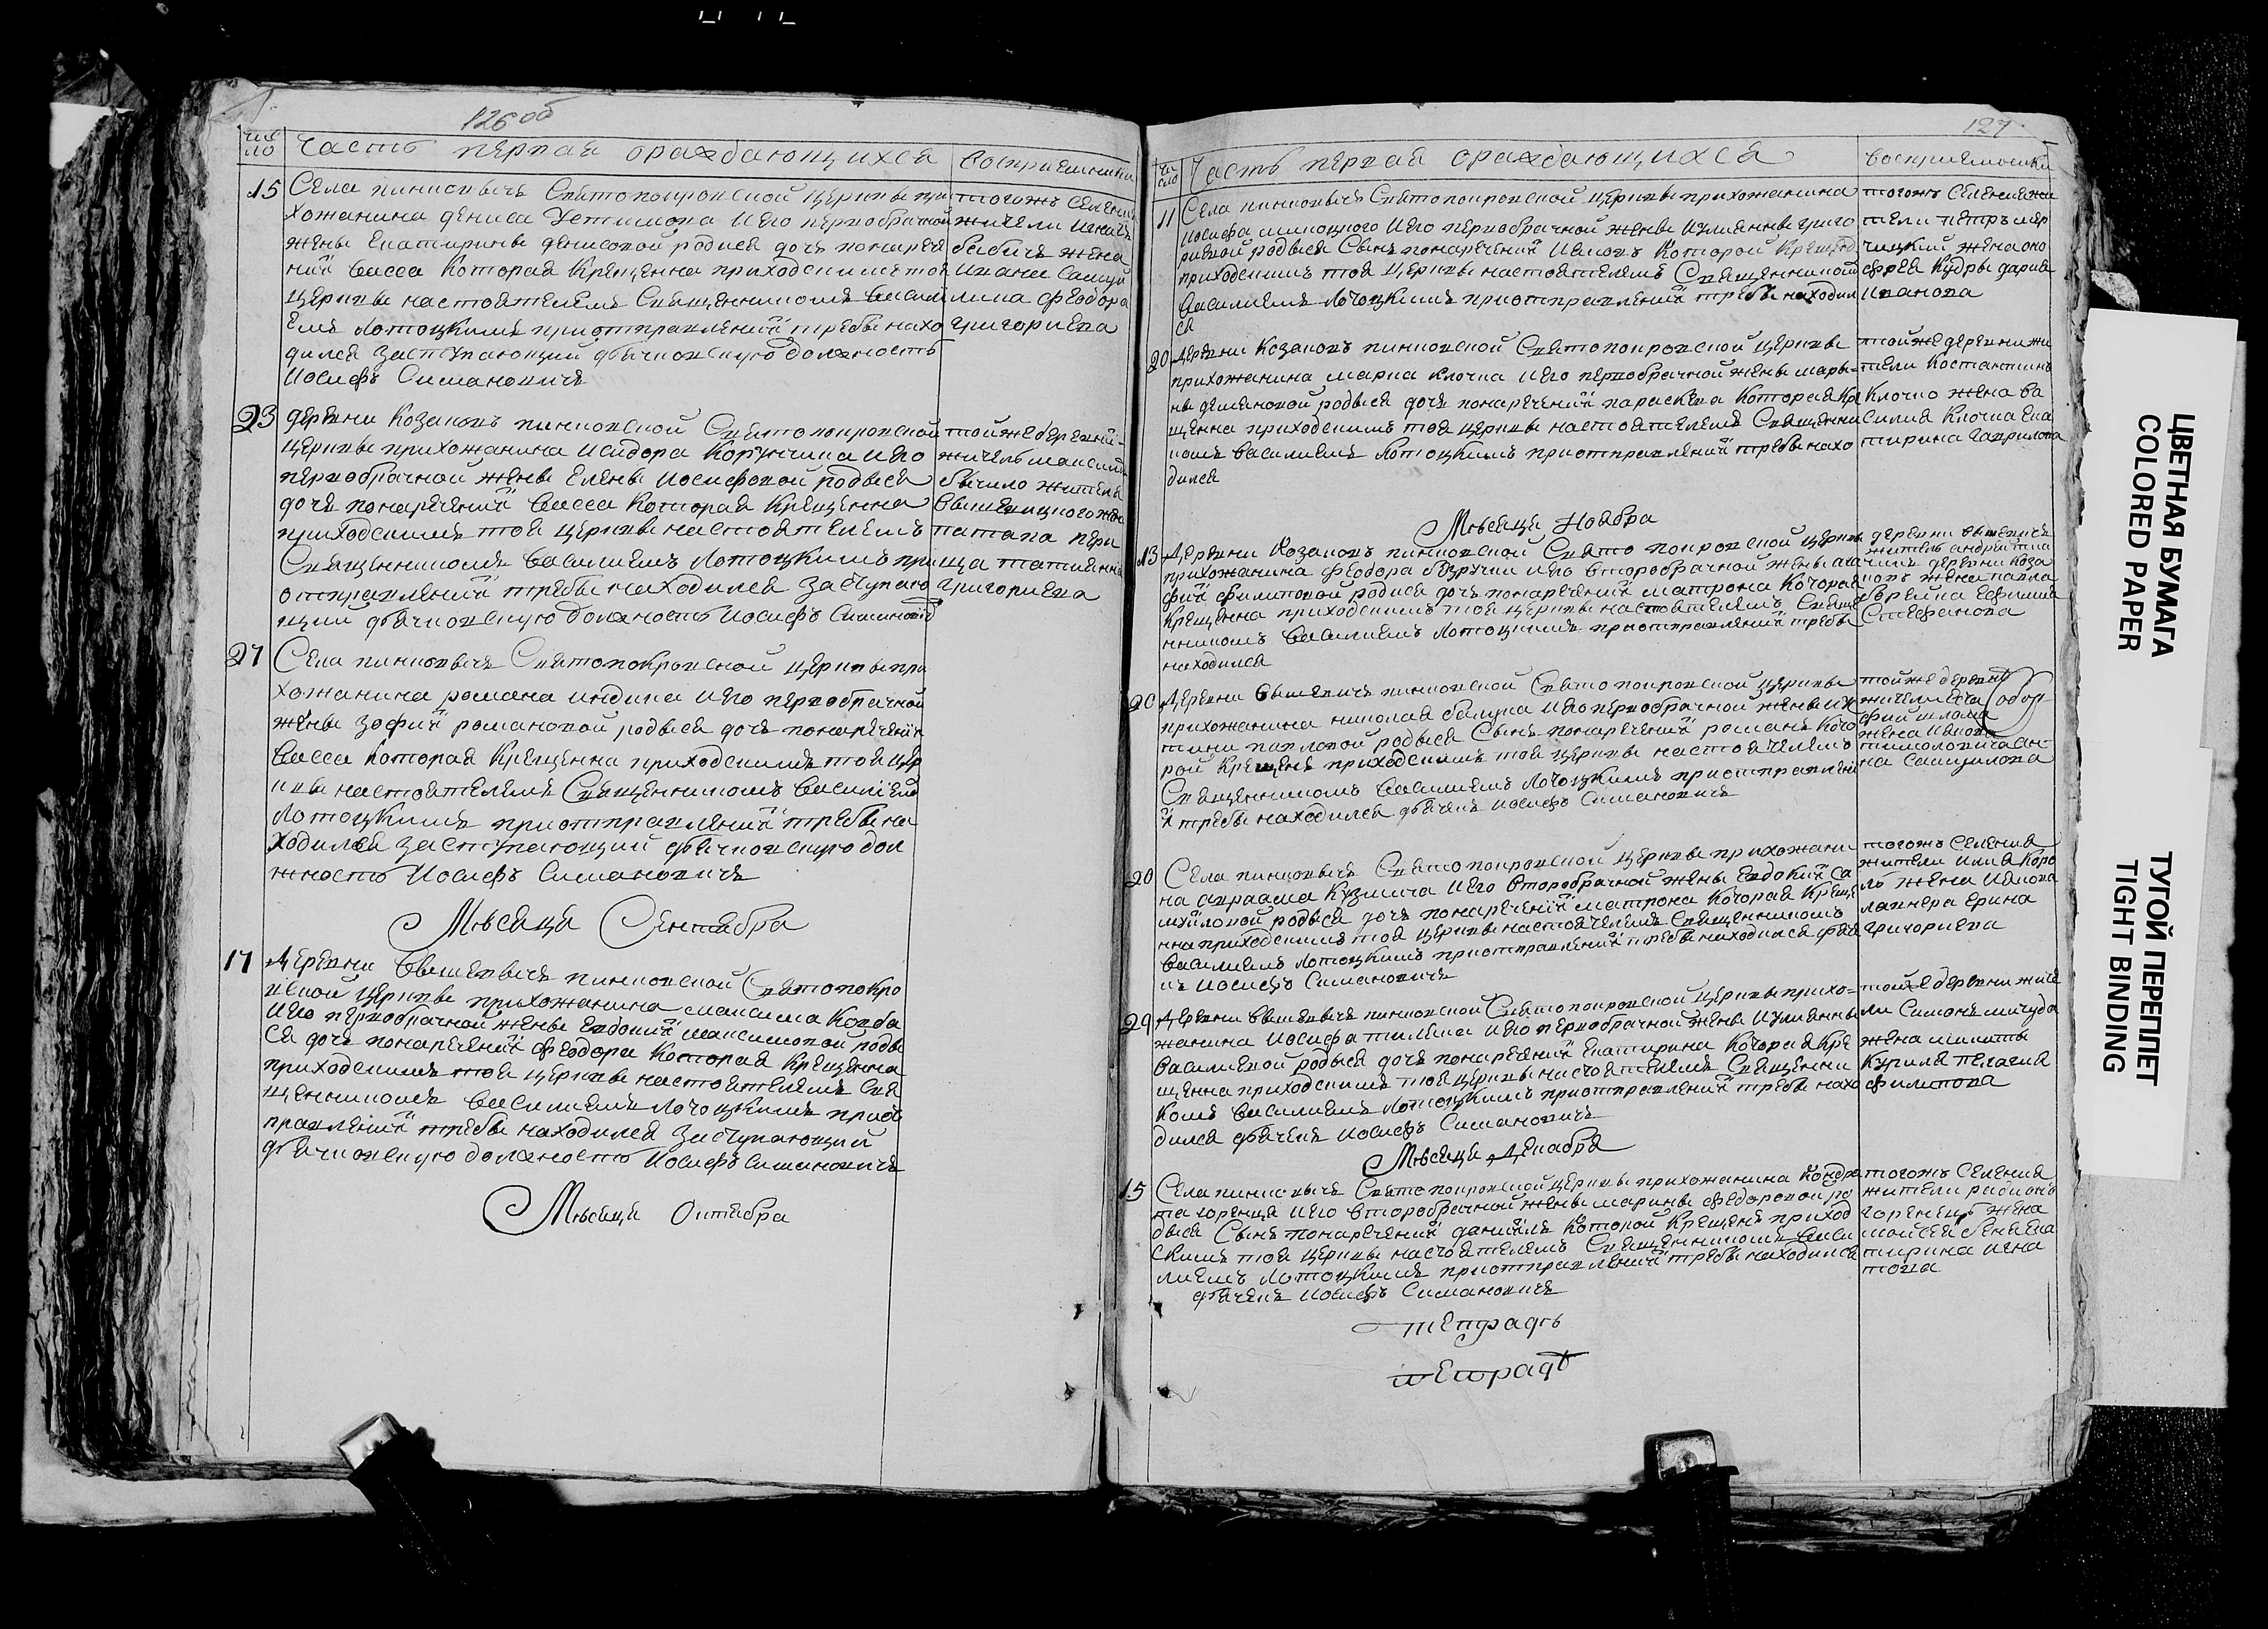 126 об
Число
Часть первая ораждающихся
восприемники
15
Села пинковичь Святопокровской церкви при
хожанина дениса Устимова и его первобрачной
жены Екатирины денисовой родися дочь понарече
ний васса Которая Крещенна приходскимъ тоя
церкви настоятелемъ Священникомъ васили
емъ Лотоцкимъ приотправлений требы нахо
дился заступающий дьячковскую должность
Иосифъ Симановичь
тогожъ селения
жители
жена
Ивана
Феодора
григориева
23
деревни Козаковъ пинковской Святопокровской
церкви прихожанина Исидора Корунчика и его
первобрачной жены Елены Иосифовой родися
дочь понаречений васса Которая Крещенна
приходскимъ тоя церкви настоятелемъ
Священникомъ василиемъ Лотоцкимъ при
отправлений требы находился заступаю
щий дьячковскую должность Иосифъ Симановичь
тойже деревни
житель максимъ
жителя
татианна
григориева
27
Села пинковичь Святопокровской церкви при
хожанина романа индика и его первобрачной
жены зофий романовой родися дочь понаречений
васса Которая Крещенна приходскимъ тоя цер
кви настоятелемъ Священникомъ василием
Лотоцкимъ приотправлений требы на
ходился заступающий дьячковскую дол
жность Иосифъ Симановичь
Мѣсяца Сентября
17
Деревни вышевичь пинковской Святопокро
вской церкви прихожанина максима Ковба
и его первобрачной жены Евдокий максимовой роди
ся дочь понаречений феодора Которая Крещенна
приходскимъ тоя церкви настоятелемъ Свя
щенникомъ василиемъ Лотоцкимъ приот
правлений требы находился заступающий
дьячковскую должность Иосифъ Симановичь
Мѣсяца Октября
127
Число
Часть первая ораждающихся
восприемники
11
Села пинковичь Святопокровской церкви прихожанина
Иосифа и его первобрачной жены Иулианны григо
риевой родися Сынъ понаречений Иаковъ Которой Крещенъ
приходскимъ тоя церкви настоятелемъ Священникомъ
василиемъ Лотоцкимъ приотправлений требы находил
ся
тогожъ селения жи
тели петръ мер
чицкий жена оно
фрея Кудры дария
Иванова
20
Деревни Козаковъ пинковской Святопокровской церкви
прихожанина марка Клочка и его первобрачной жены марь-
ны демяновой родися дочь понаречений параскева Которая Кре
щенна приходскимъ тоя церкви настоятелемъ Священни
комъ василиемъ Лотоцкимъ приотправлений требы нахо
дился
тойже деревни жи
тели Костантинъ
Клочко жена ва
силия Клочка Ека
тирина гаврилова
Мѣсяца Ноября
13
Деревни Козаковъ пинковской Свято покровской церкви
прихожанина феодора и его второбрачной жены ага
фий филиповой родися дочь понаречений матрона Которая
Крещенна приходскимъ тоя церкви настоятелемъ Свяще
нникомъ василиемъ Лотоцкимъ приотправлений требы
находился
деревни вышевичь
житель андрей
деревни Коза
ковъ жена павла
Ефимия
Стефанова
20
Деревни вышевичь пинковской Свято покровской церкви
прихожанина николая балука и его первобрачной жены Иу
тини павловой родися Сынъ понаречений романъ Кото
рой Крещенъ приходскимъ тоя церкви настоятелемъ
Священникомъ василиемъ Лотоцкимъ приотправлени
й требы находился дьячекъ Иосифъ Симановичь
тойже деревни
жители
жена Иакова
ан
на самуилова
20
Села пинковичь Святопокровской церкви прихожани
на авраама Кузмича и его второбрачной жены Евдокий са
муиловой родися дочь понаречений матрона Которая Креще
нна приходскимъ тоя церкви настоятелемъ Священникомъ
василиемъ Лотоцкимъ приотправлений требы находился дьяче
къ Иосифъ Симановичь
тогожъ селения
жители илия Коро
ль жена Иакова
лавнера Ерина
григориева
29
Деревни вышевичь пинковской Святопокровской церкви прихо-
жанина Иосифа и его первобрачной жены Иулианны
василиевой родися дочь понаречений Екатирина Которая Кре
щенна приходскимъ тоя церкви настоятелемъ Священни
комъ василиемъ Лотоцкимъ приотправлений требы нахо
дился дьячекъ Иосифъ Симановичь
тойже деревни жите
ли Симонъ мичуда
жена никиты
Курила пелагия
филипова
Мѣсяца Декабря
15
Села пинковичь Святопокровской церкви прихожанина Кондра
та горенца и его второбрачной жены марины федоровой ро
дися Сынъ понаречений даниилъ Которой Крещенъ приход
скимъ тоя церкви настоятелемъ Священникомъ васи
лиемъ Лотоцкимъ приотправлений требы находился
дьячекъ Иосифъ Симановичь
тогожъ селения
жители радионъ
горенецъ жена
моисея Ека
тирина игна
това
тетрадь
тетрадь
ЦВЕТНАЯ БУМАГА
COLORED PAPER
ТУГОЙ ПЕРЕПЛЕТ
TIGHT BINDING